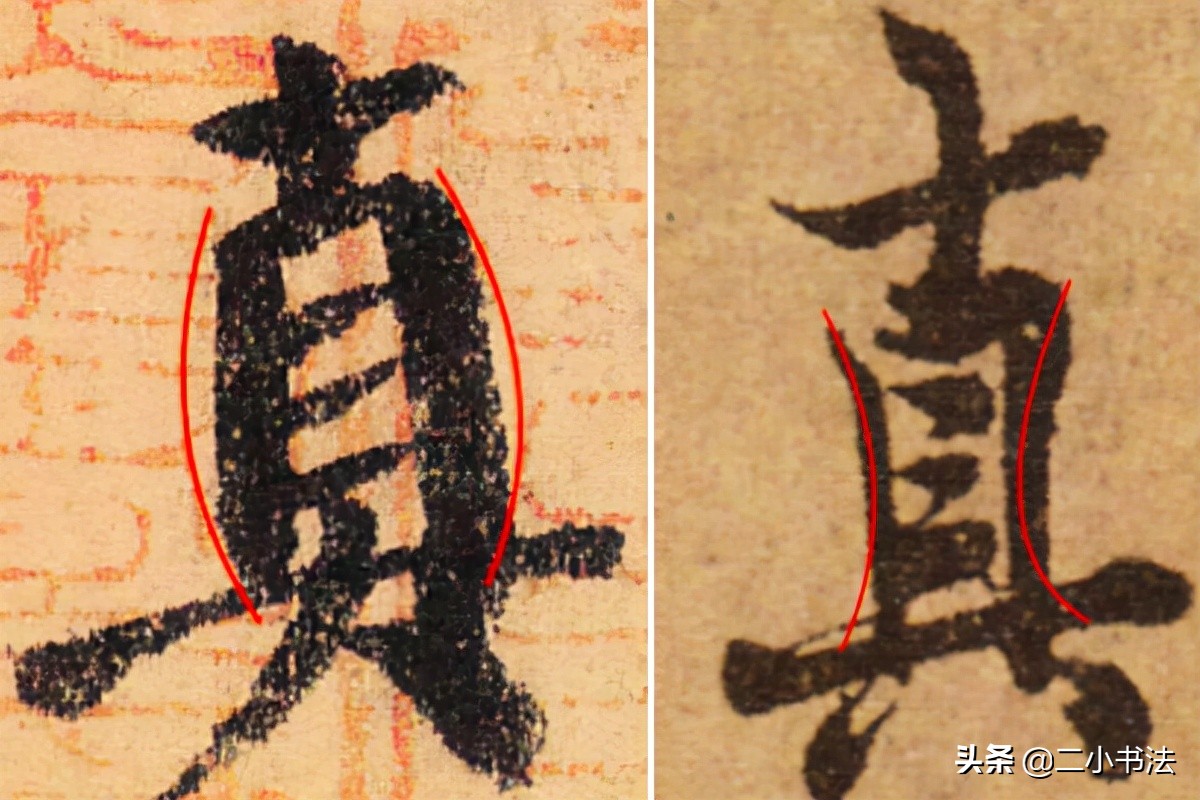 真 真
头条 @二小书法